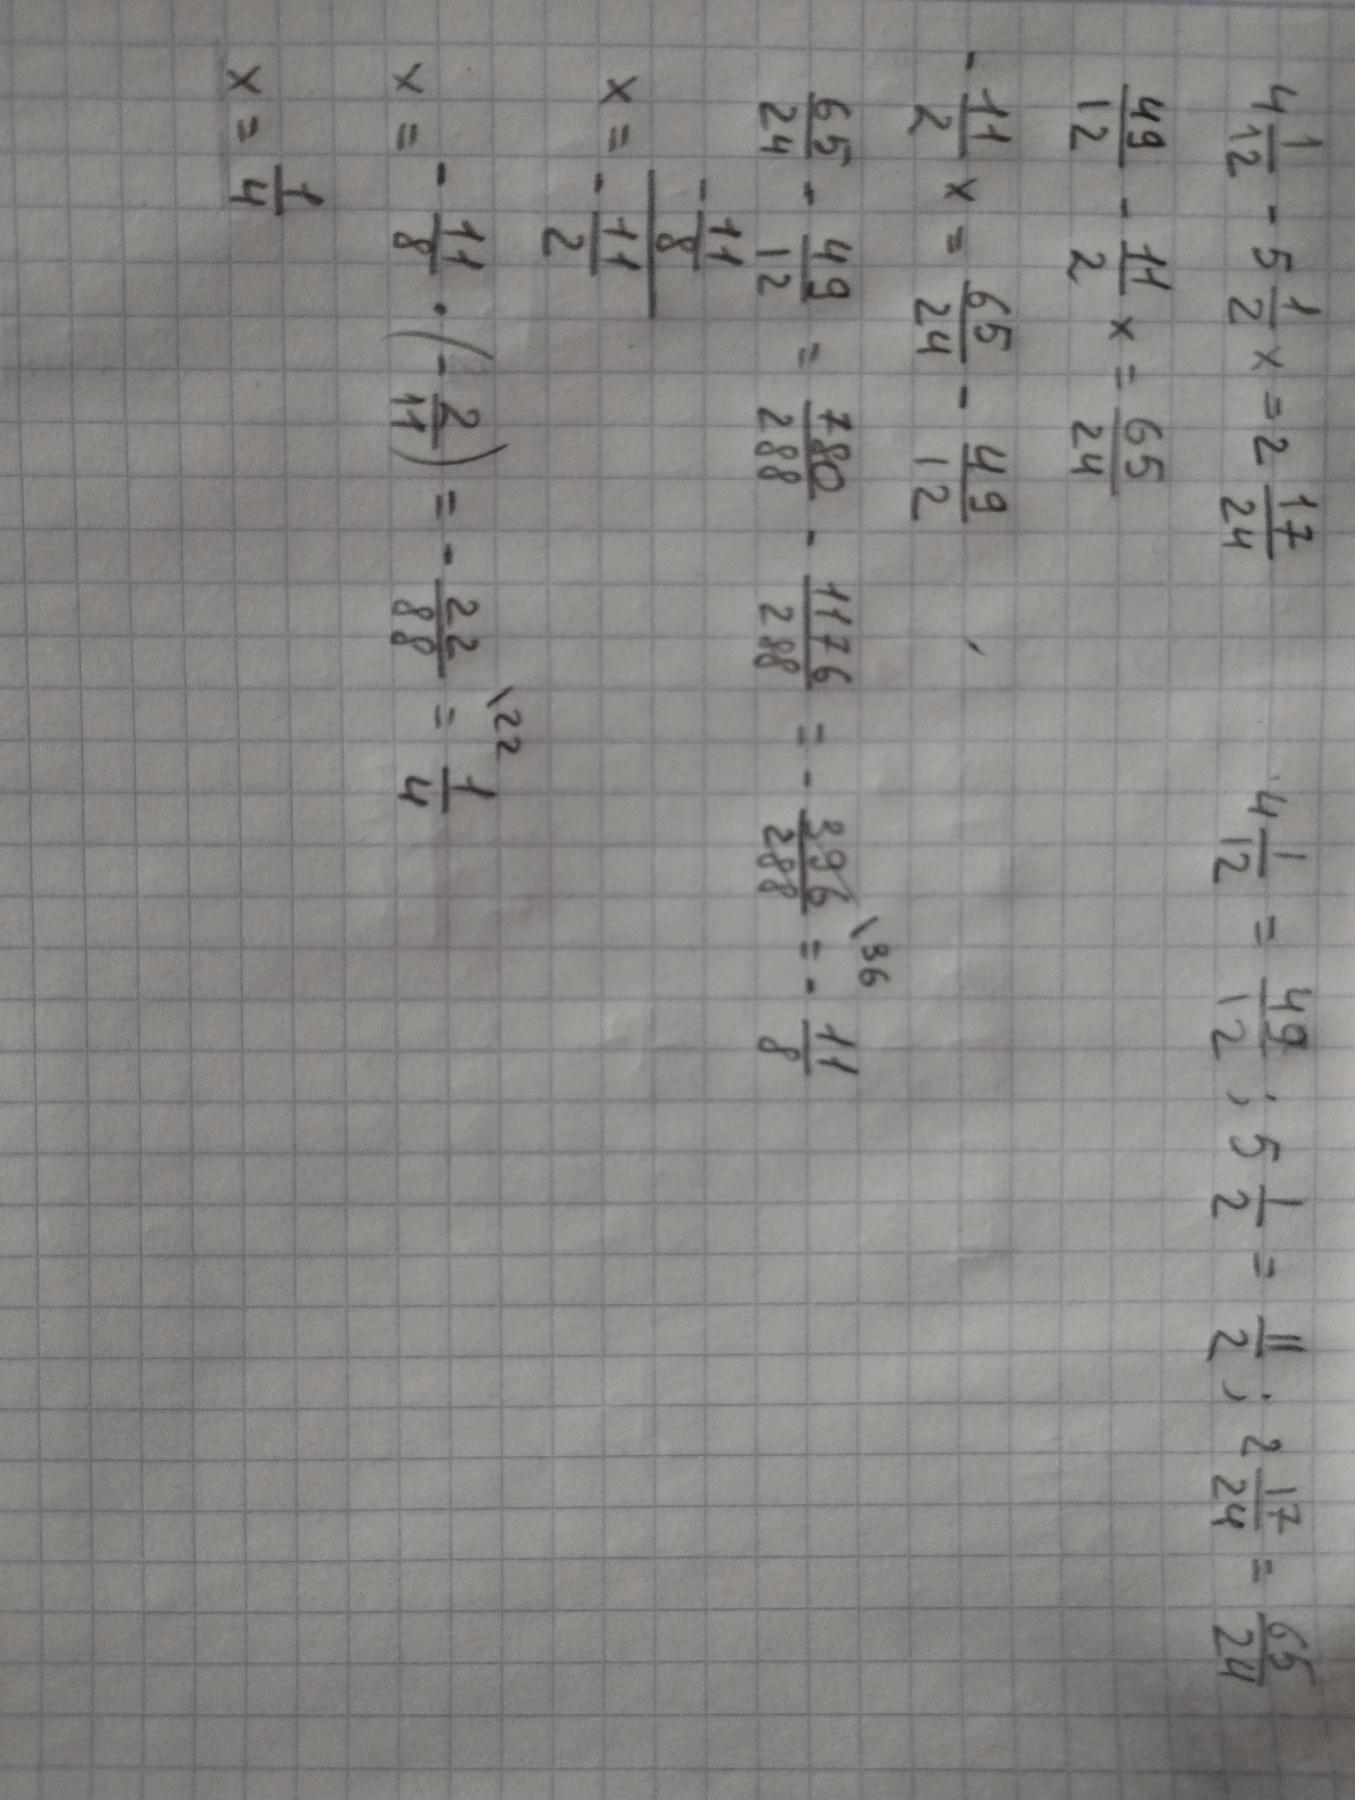 4 1/12 - 5 1/2 x = 2 17/24    4 1/12 = 49/12 ; 5 1/2 = 11/2 ; 2 17/24 = 65/24
49/12 - 11/2 x = 65/24
- 11/2 x = 65/24 - 49/12
65/24 - 49/12 = 780/288 - 1176/288 = - 396/288 \36 = - 11/8
x = (- 11/8)/(- 11/2)
x = - 11/8 · (- 2/11) = - 22/88 \22 = 1/4
x = 1/4